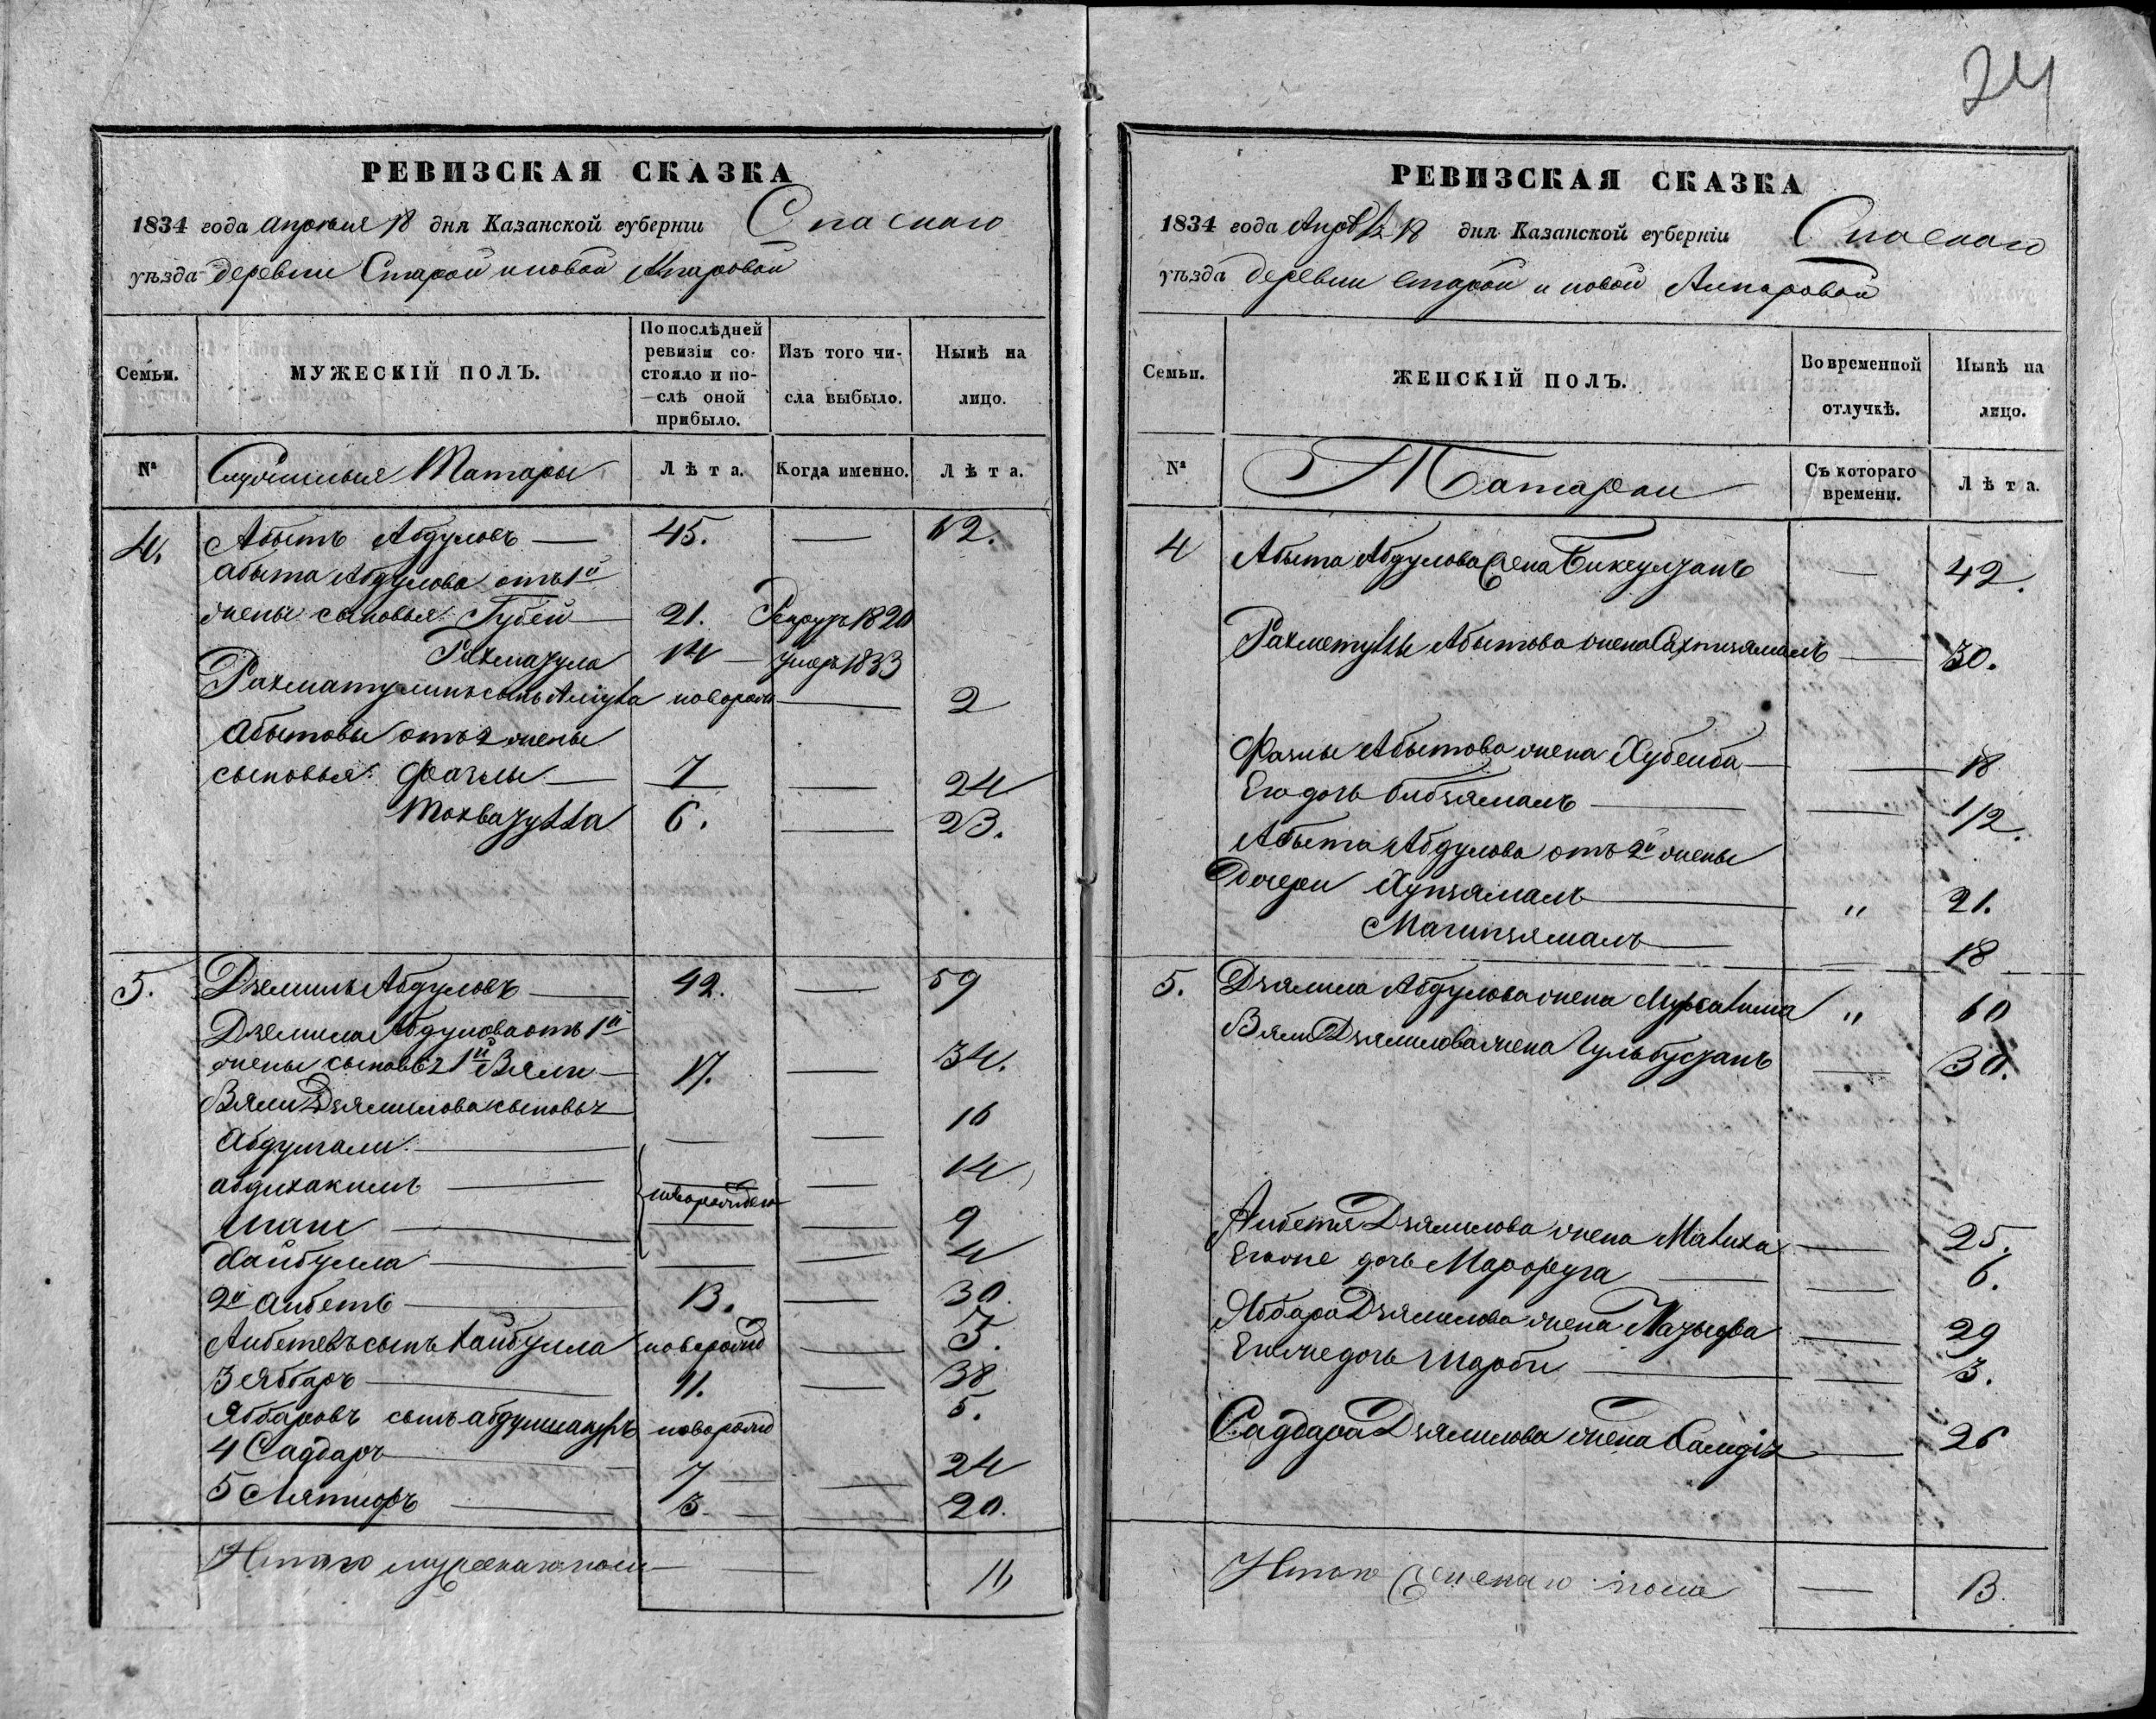 24
РЕВИЗСКАЯ СКАЗКА
1834 года апреля 18 дня Казанской губернiи Спаскаго
уѣзда деревни Старой и новой Алпаровой
Семьи.
МУЖЕСКIЙ ПОЛЪ.
По послѣдней ревизiи состояло и послѣ оной прибыло.
Изъ того числа выбыло.
Нынѣ на лицо.
№
Служилыя Татары
Лѣта.
Когда именно.
Лѣта.
4. Абытъ Абдуловъ — 45. — 62.
Абыта Абдулова отъ 1й
жены сыновья: Губей — 21. Рекрут 1820
14 — умеръ 1833
сынъ новорож — 2
Абытовы отъ 2 жены
сыновья: Фазлы — 7 — 24
6. — 23.
5. Дзелилъ Абдуловъ — 42. — 59
Дзелила Абдулова отъ 1й
жены сыновья 1й Вяли — 17. — 34.
Вяли Дзялилова сыновья
Абдулгали — — — 16
абдихакимъ — — 14
новорожден
Шаги — — 9
Хайбулла — — — 4
2й Аибетъ — 13. — 30.
Аибетевъ сынъ Хайбулла новорожд — 5.
3 Ябbаръ — 11. — 38
Яббаровъ сынъ новорожд 5.
4 Садdаръ — 7 — — 24
5 — 3. — — 20.
Итого мужескаго пола — — 11
РЕВИЗСКАЯ СКАЗКА
1834 года Апрѣля 18 дня Казанской губернiи Спаскаго
уѣзда деревни старой и новой Алпаровой
Семьи.
ЖЕНСКIЙ ПОЛЪ.
Во временной отлучкѣ.
Нынѣ на лицо.
№
Татарки
Съ котораго времени.
Лѣта.
4 Абыта Абдулова жена — 42.
Абытова жена — 30.
Фазлы Абытова жена Хубейба — — 18
Его дочь Бибзямалъ — — 1/2.
Абыта Абдулова отъ 2й жены
Дочери Хупзямалъ — " 21.
Магипзямалъ — — 18
5. Дзялила Абдулова жена " 60
Вяли Дзялилова жена — 30.
Аибетя Дзялилова жена — 25.
Его же дочь — — 6.
Яббара Дзялилова жена — 29
Его же дочь Шарби — — 3.
Садdара Дзялилова жена — 26
Итого женскаго пола — 13.